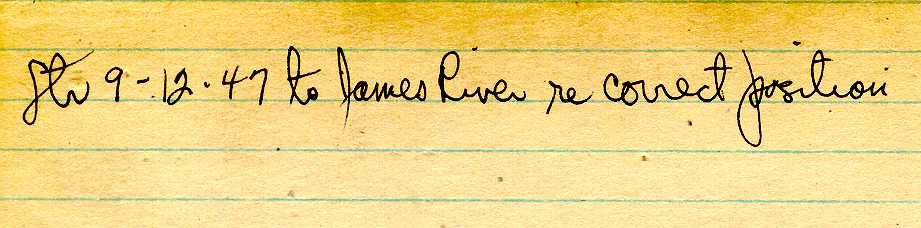 ltr 9-12-47 to James River re correct position